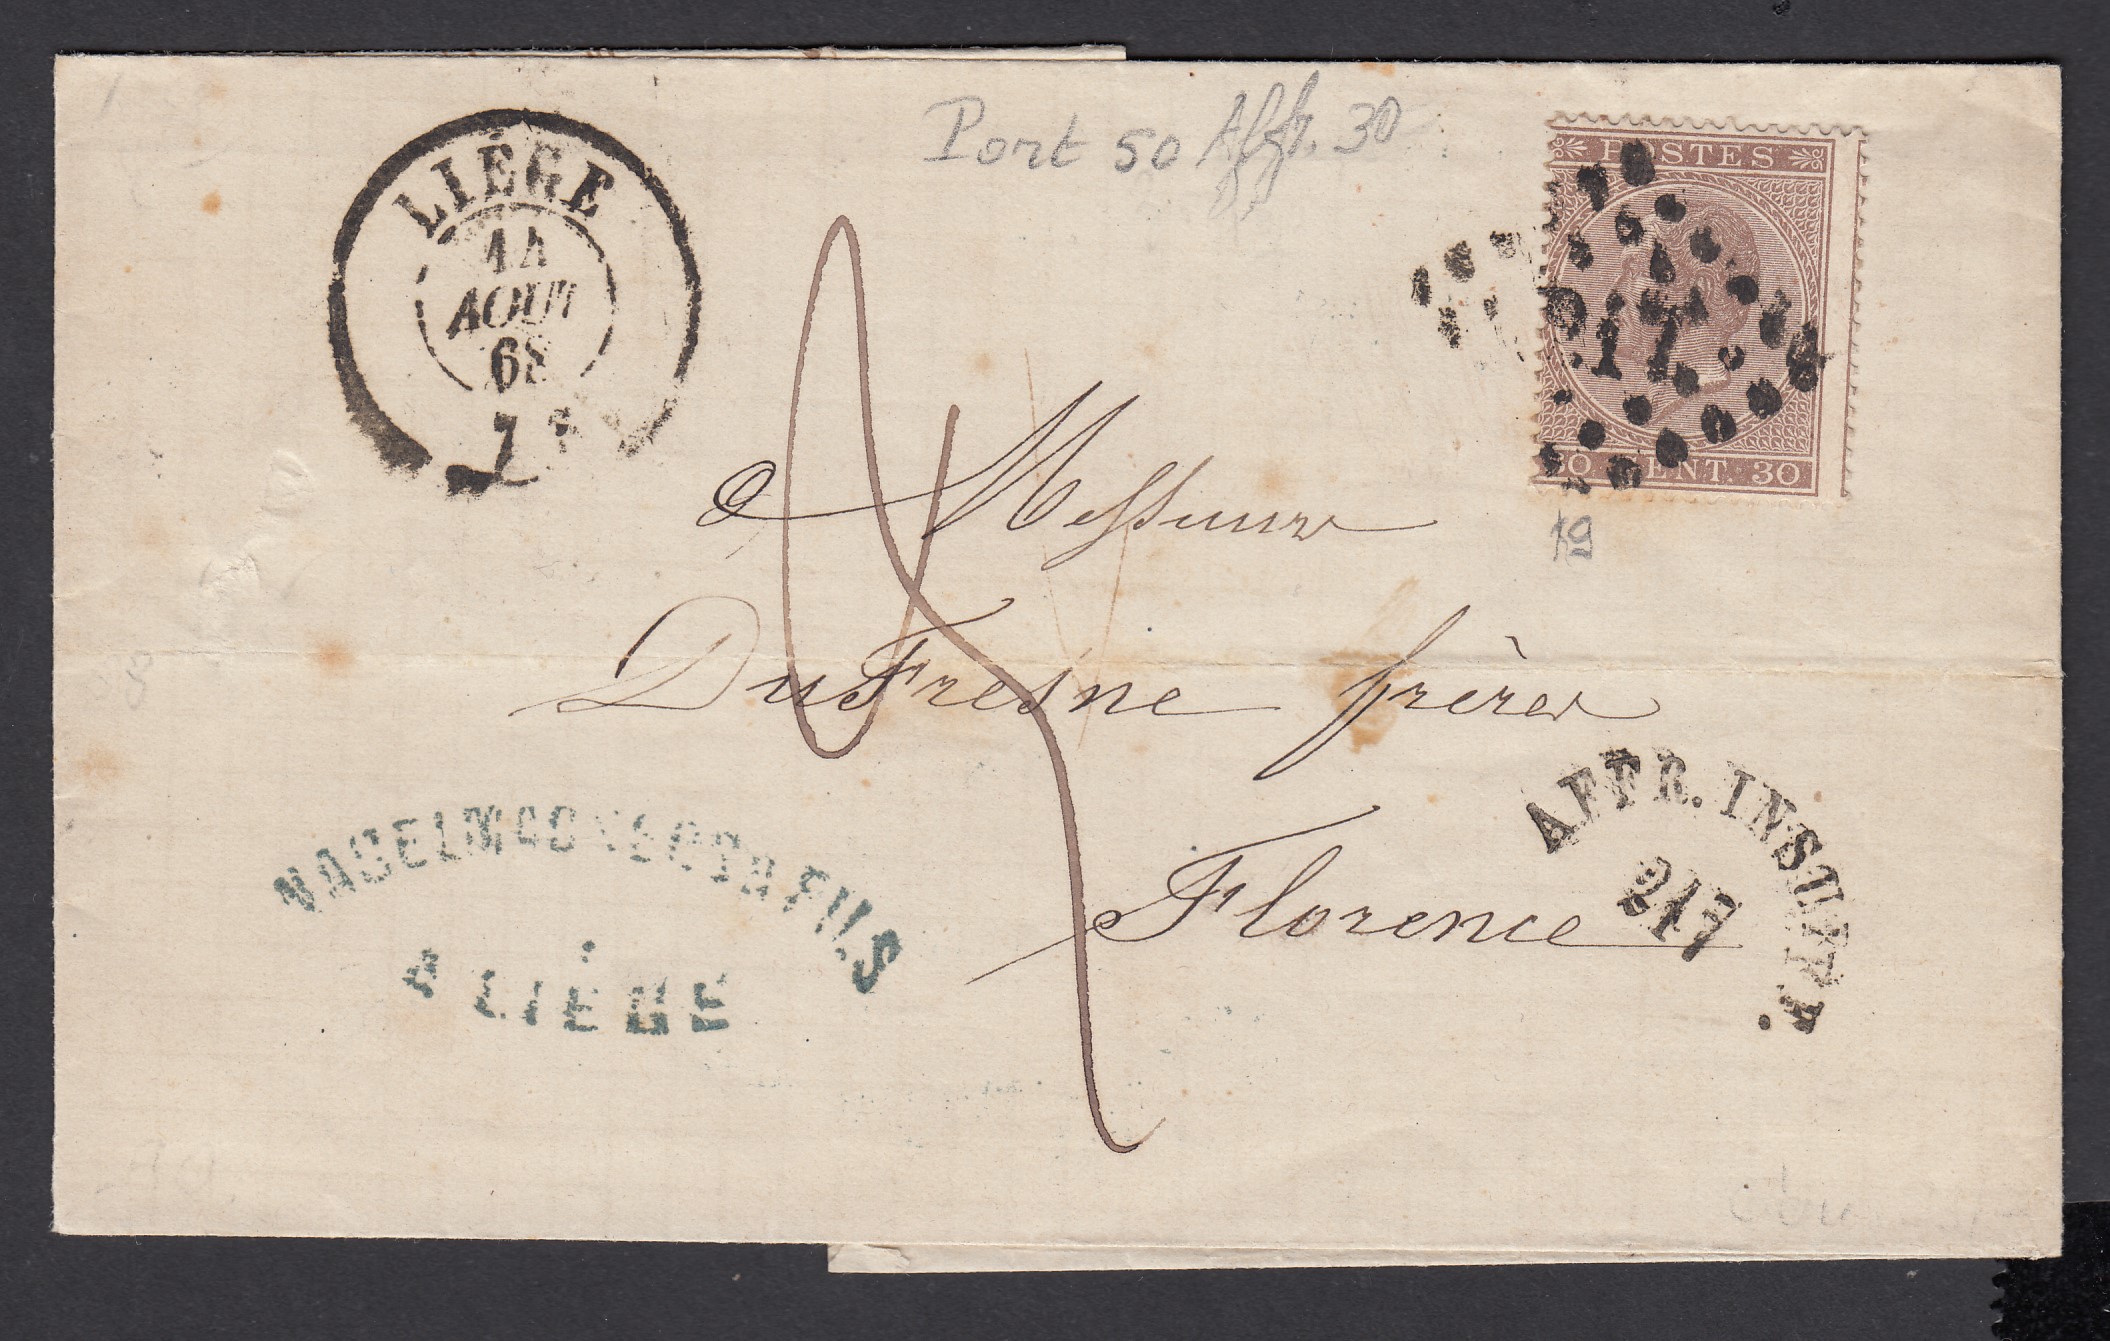 Port 50 Affr. 30
LIÉGE
14
AOUT
68
7
POSTES
217
30 CENT. 30
19
Messieurs
DuFresne frères
Florence
AFFR. INSUFF.
217
NAGELMACKERS & FILS
A LIÉGE